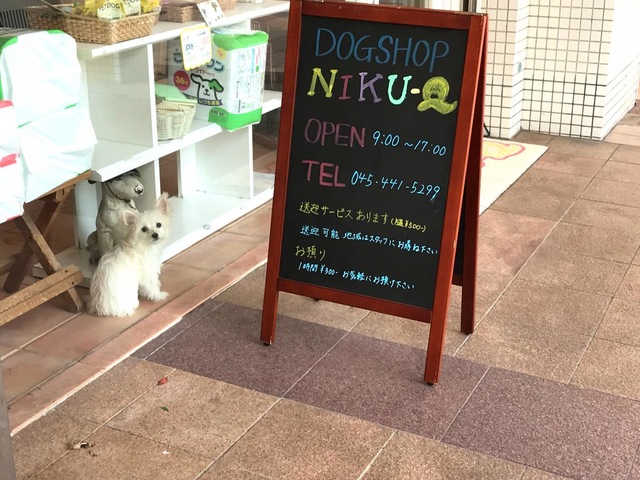 DOGSHOP
NIKU-Q
OPEN 9:00~17:00
TEL 045-441-5299
送迎サービスあります
送迎可能地域はスタッフにお尋ね下さい
お預り
1時間¥300- お気軽にお預け下さい